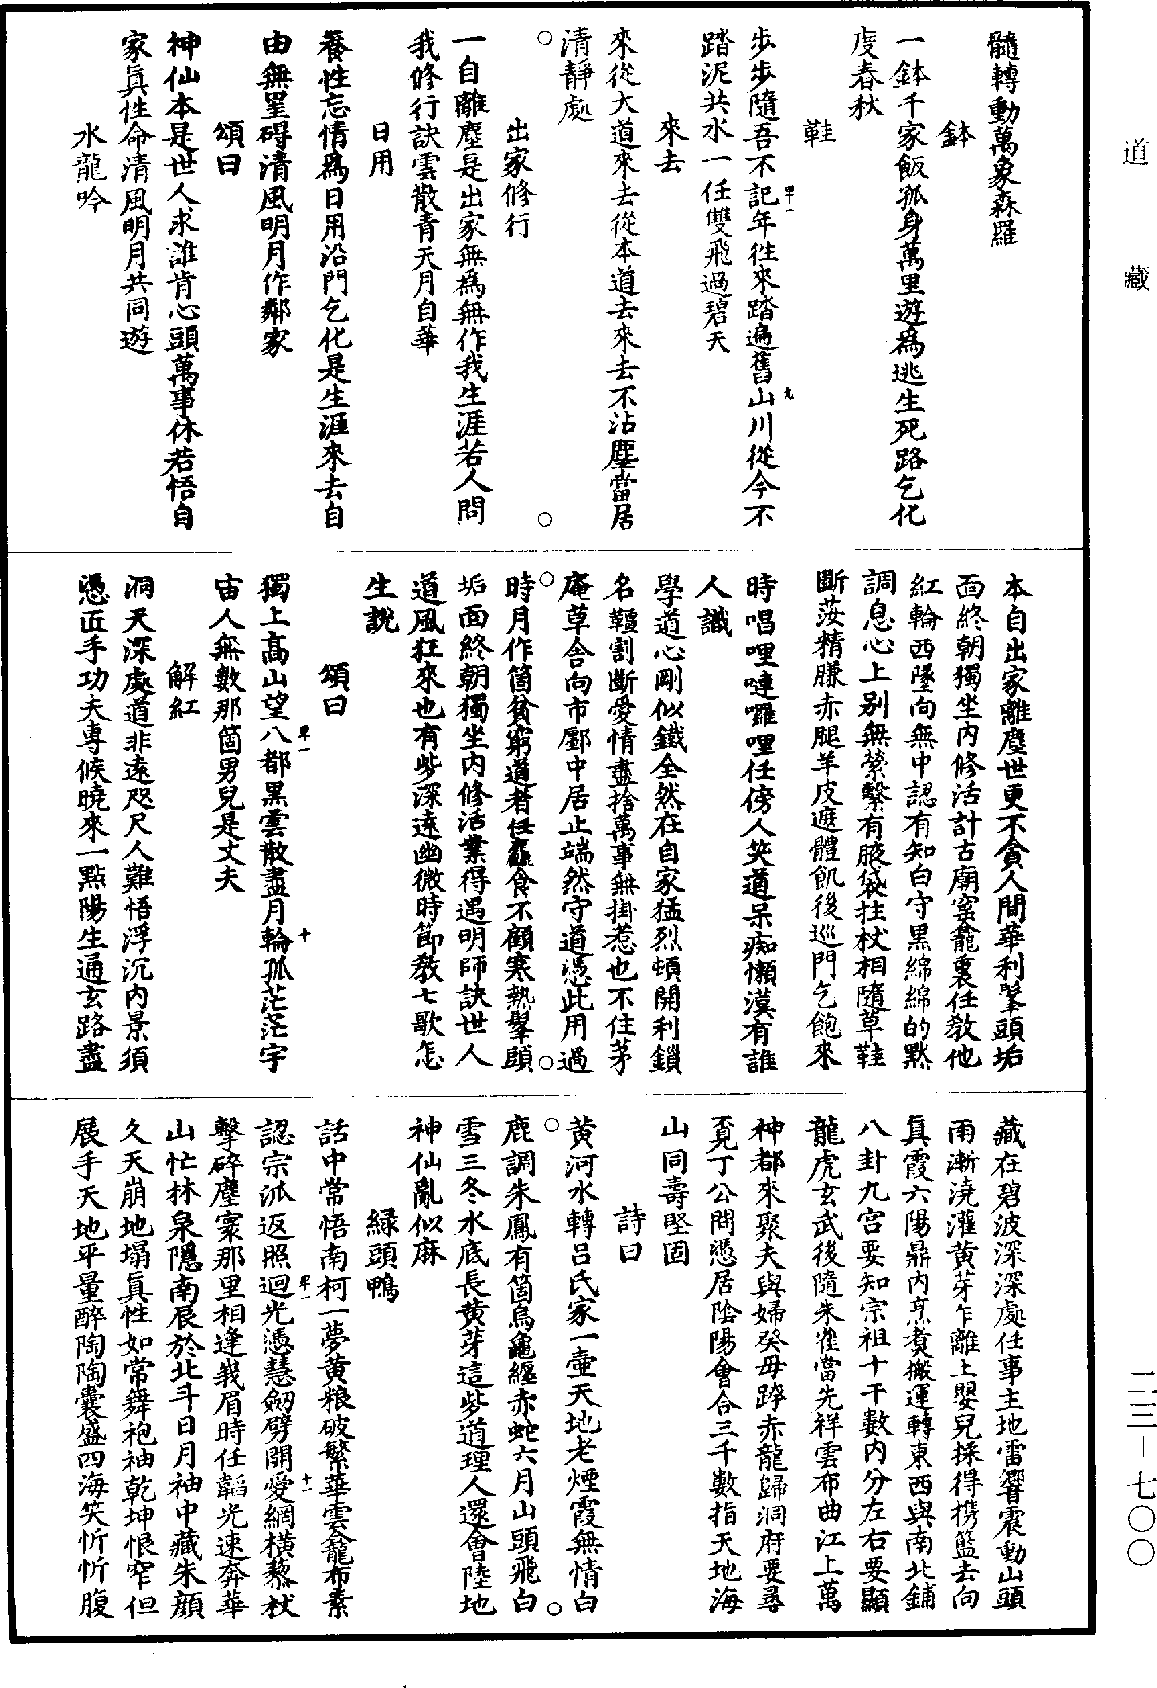 道藏
髓轉動萬象森羅
鉢
一鉢千家飯孤身萬里遊爲逃生死路乞化
度春秋
鞋
步步隨吾不記年徃來踏遍舊山川從今不
踏泥共水一任雙飛過碧天
來去
來從大道來去從本道去來去不沾塵當居
清靜處
出家修行
一自離塵是出家無爲無作我生涯若人問
我修行訣雲散青天月自華
日用
養性忘情爲日用沿門乞化是生涯來去自
由無罣碍清風明月作鄰家
頌曰
神仙本是世人求誰肯心頭萬事休若悟自
家眞性命清風明月共同遊
水龍吟
本自出家離塵世更不貪人間華利髼頭垢
面終朝獨坐内修活計古廟窰龕裏任教他
紅輪西墜向無中認有知白守黑綿綿的㸃
調息心上別無縈繫有腋袋拄杖相隨草鞋
斷莎精膁赤腿羊皮遮體飢後巡門乞飽來
時唱哩嗹囉哩任傍人笑道呆痴懶漢有誰
人識
學道心剛似鐵全然在自家猛烈頓開利鎖
名韁割斷愛情盡捨萬事無掛惹也不住茅
庵草舍向市鄽中居止端然守道憑此用過
時月作箇貧窮道者任麤食不顧寒熱髼頭
垢面終朝獨坐内修活業得遇明師訣世人
道風狂來也有些深遠幽微時節教七歌怎
生說
頌曰
獨上高山望八都黑雲散盡月輪孤茫茫宇
宙人無數那箇男兒是丈夫
解紅
洞天深處道非遠咫尺人難悟浮沉内景須
憑匠手功夫専候曉來一點陽生通玄路盡
藏在碧波深深處任事主地雷響震動山頭
雨漸澆灌黄芽乍離上嬰兒採得携籃去向
眞霞六陽鼎内烹煑搬運轉東西與南北鋪
八卦九宫要知宗祖十干數内分左右要顯
龍虎玄武後隨朱雀當先祥雲布曲江上萬
神都來聚夫與婦癸毋跨赤龍歸洞府要尋
覔丁公問憑居陰陽會合三千數指天地海
山同壽堅固
詩曰
黄河水轉吕氏家一壷天地老煙霞無情白
鹿調朱鳳有箇烏龜纏赤蛇六月山頭飛白
雪三冬水底長黄芽這些道理人還會陸地
神仙亂似麻
緑頭鴨
話中常悟南柯一夢黄粮破繁華雲籠布素
認宗派返照迴光憑慧劒劈開愛網横藜杖
擊碎塵寰那里相逢峩眉時任韜光速奔華
山忙林泉隱南辰於北斗日月袖中藏朱顔
久天崩地塌眞性如常舞袍袖乾坤恨窄但
展手天地平量醉陶陶囊盛四海笑忻忻腹
二三－七〇〇